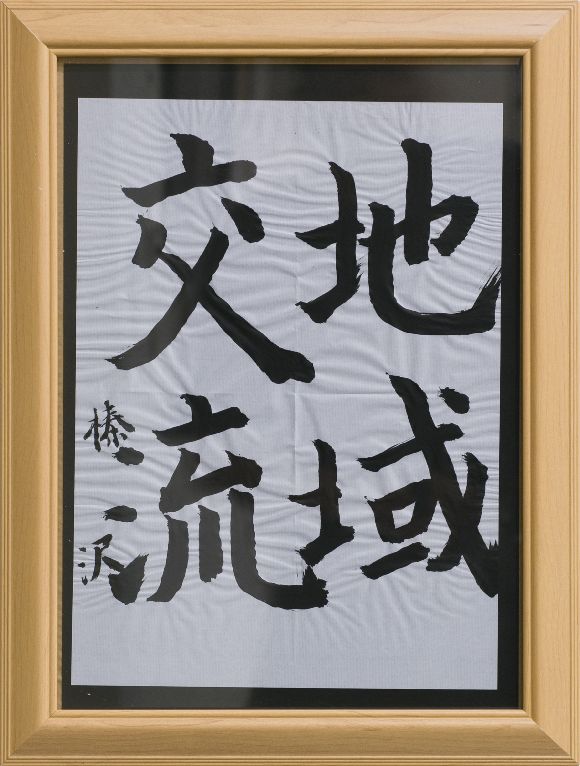 地域
交流
榛沢